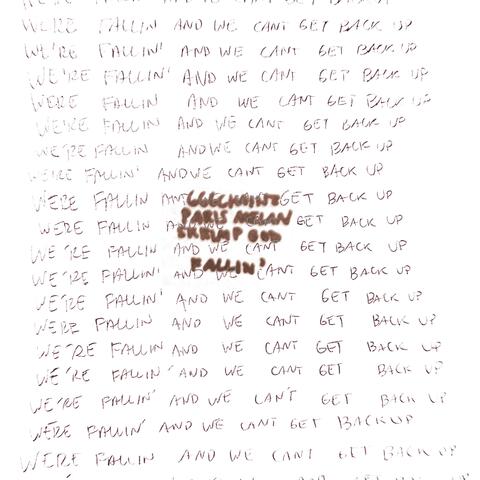 WE'RE FALLIN' AND WE CANT GET BACK UP
WE'RE FALLIN' AND WE CANT GET BACK UP
WE'RE FALLIN' AND WE CANT GET BACK UP
WE'RE FALLIN' AND WE CANT GET BACK UP
WERE FALLIN AND WE CANT GET BACK UP
WE'RE FALLIN' AND WE CANT GET BACK UP
WE'RE FALLIN' AND WE CANT GET BACK UP
WE'RE FALLIN' AND WE CANT GET BACK UP
WERE FALLIN GET BACK UP
PARIS
WERE FALLIN GET BACK UP
GOD
WE'RE FALLIN AND WE CANT GET BACK UP
FALLIN'
WE'RE FALLIN' AND WE CANT GET BACK UP
WE'RE FALLIN' AND WE CANT GET BACK UP
WERE FALLIN AND WE CANT GET BACK UP
WE'RE FALLIN AND WE CANT GET BACK UP
WE'RE FALLIN' AND WE CANT GET BACK UP
WE'RE FALLIN' AND WE CAN'T GET BACK UP
WE'RE FALLIN' AND WE CANT GET BACK UP
WE'RE FALLIN AND WE CANT GET BACK UP